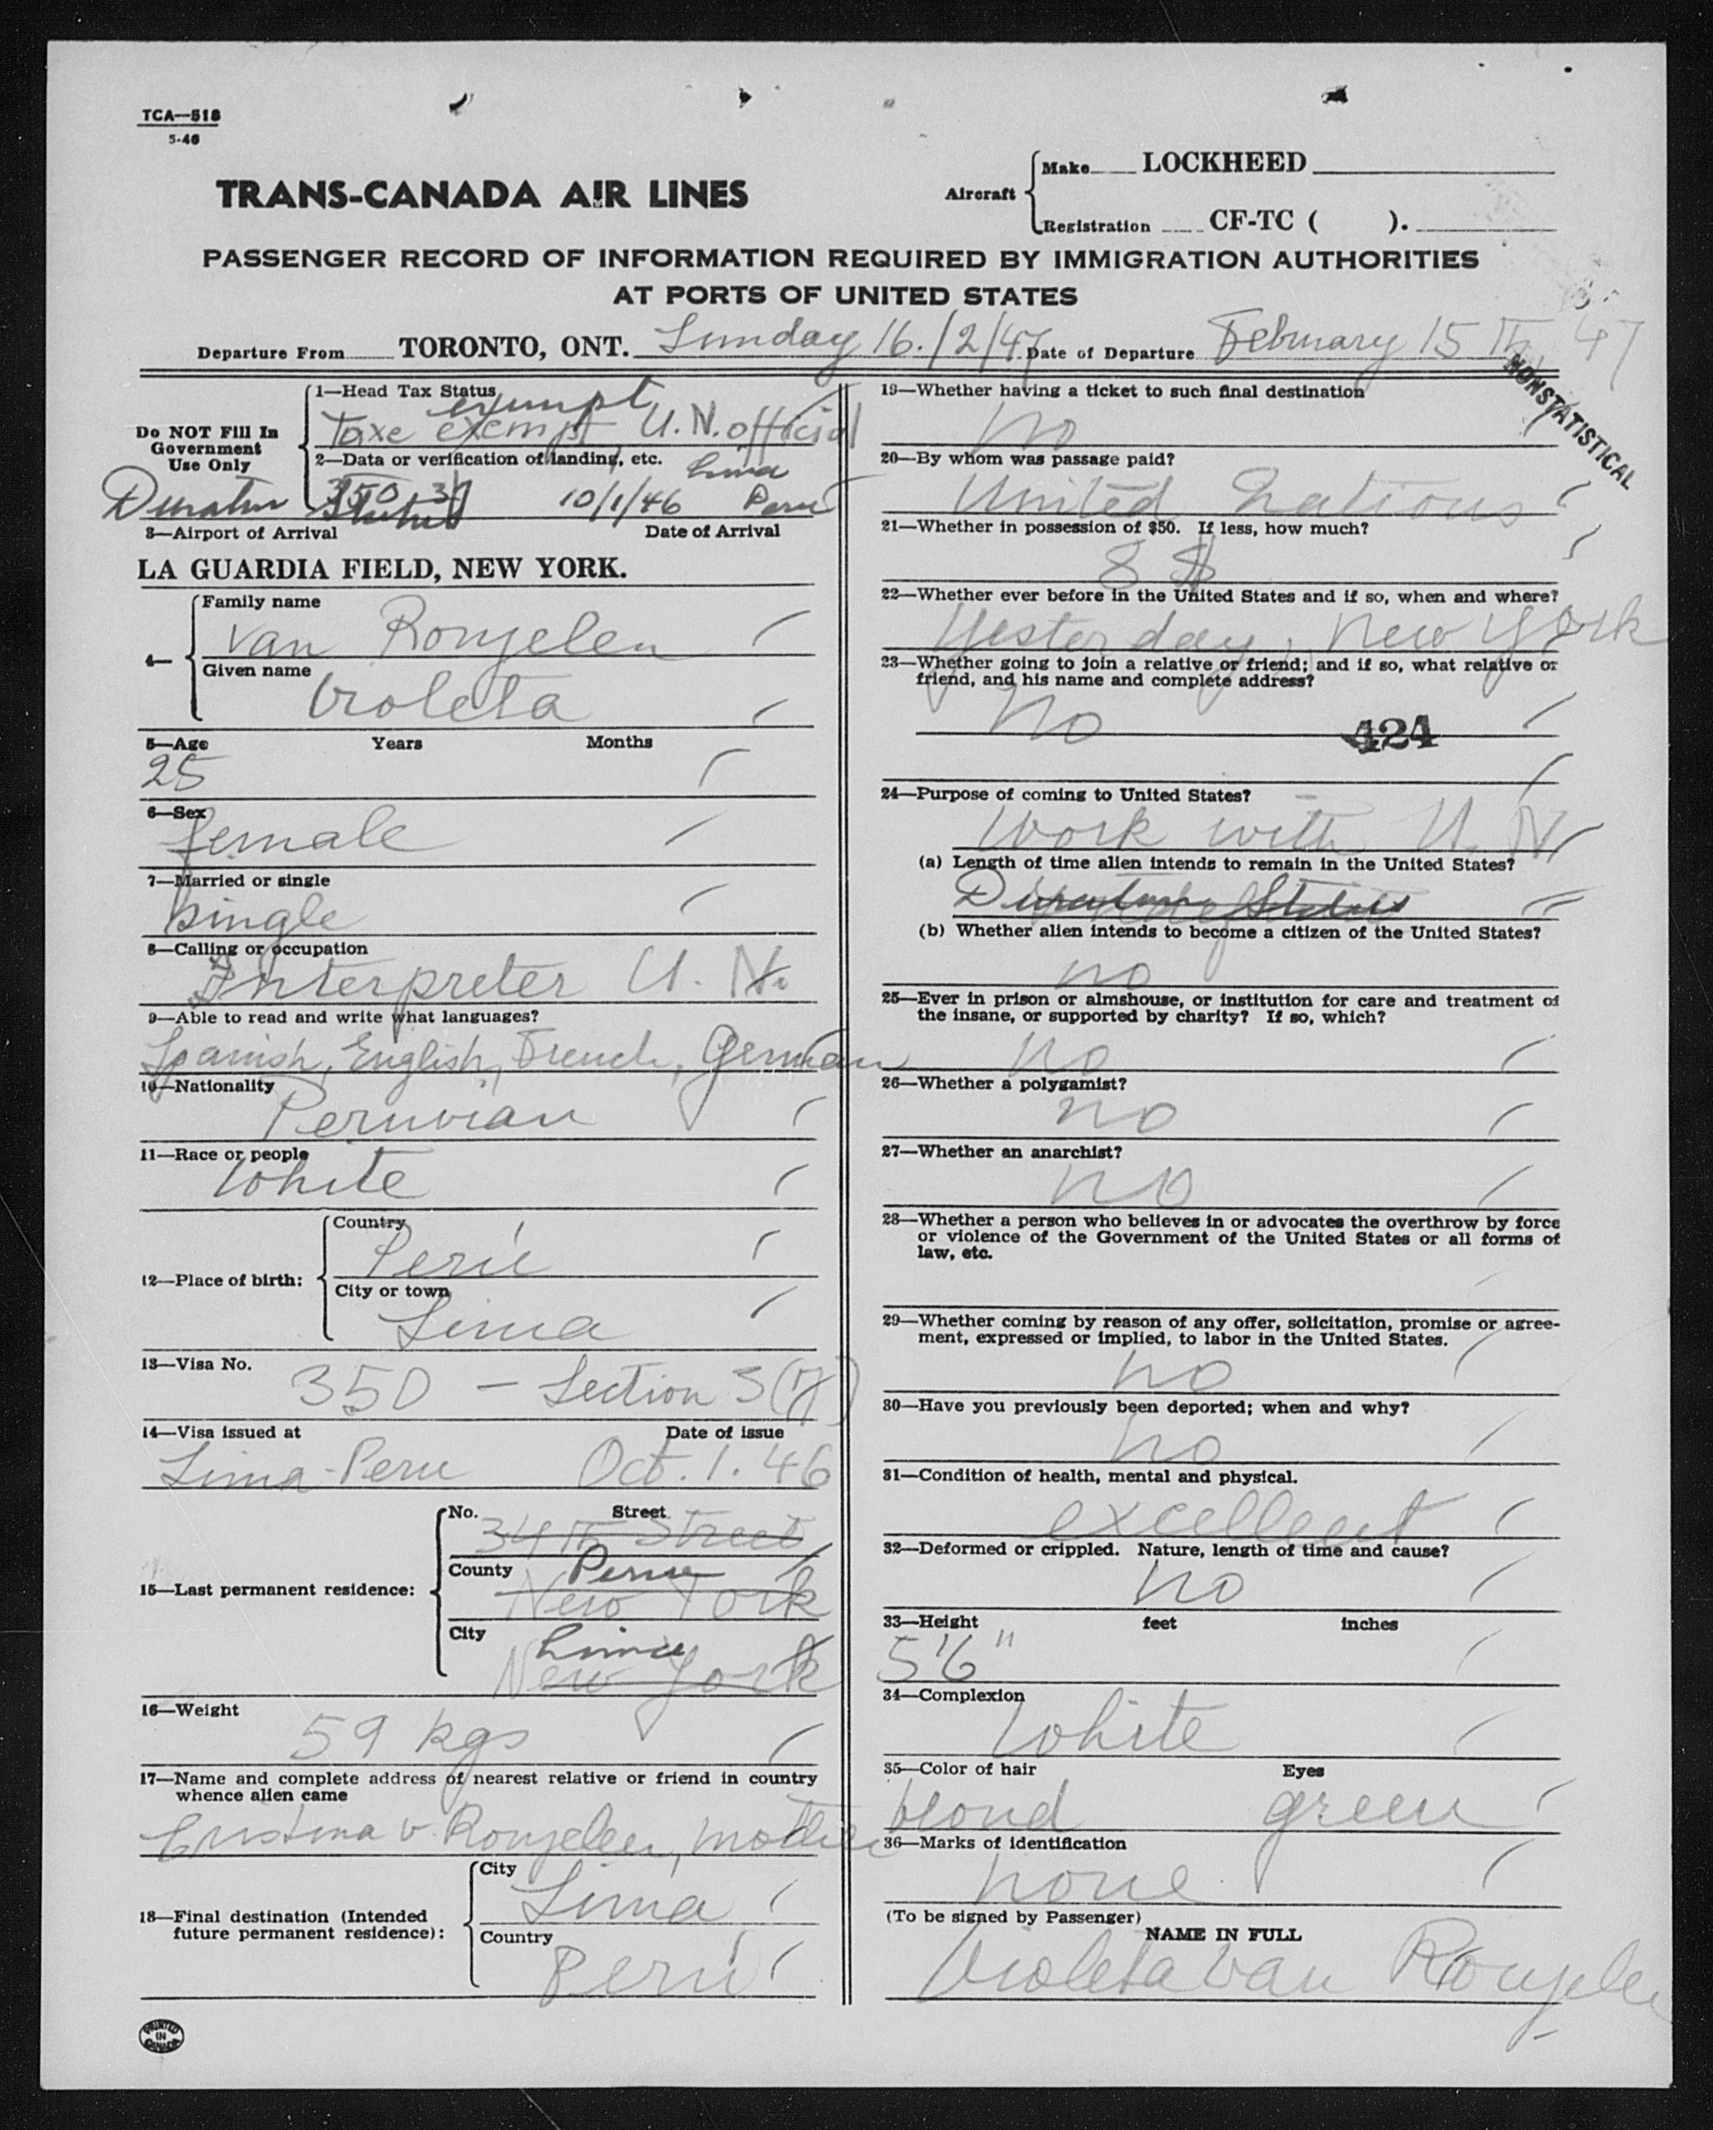 TCA—518
5-46
TRANS-CANADA AIR LINES
Aircraft
Make LOCKHEED
Registration CF-TC ( ).
PASSENGER RECORD OF INFORMATION REQUIRED BY IMMIGRATION AUTHORITIES
AT PORTS OF UNITED STATES
Departure From TORONTO, ONT. Sunday 16./2/47 Date of Departure February 15th, 47
NONSTATISTICAL
Do NOT Fill In
Government
Use Only
1—Head Tax Status
exempt
Taxe exempt U.N. official
2—Data or verification of landing, etc. Lima
Duration Status 350 10/1/46 Peru
3—Airport of Arrival Date of Arrival
LA GUARDIA FIELD, NEW YORK.
4—
Family name
van Ronzelen
Given name
Violeta
5—Age Years Months
25
6—Sex
female
7—Married or single
single
8—Calling or occupation
Interpreter U. N.
9—Able to read and write what languages?
Spanish, English, French, German
10—Nationality
Peruvian
11—Race or people
White
12—Place of birth:
Country
Perú
City or town
Lima
13—Visa No.
350 - Section 3(7)
14—Visa issued at Date of issue
Lima-Peru Oct. 1. 46
15—Last permanent residence:
No. Street
34th Street
County Peru
New York
City Lima
New York
16—Weight
59 kgs
17—Name and complete address of nearest relative or friend in country
whence alien came
Cristina v. Ronzelen, mother
18—Final destination (Intended
future permanent residence):
City
Lima
Country
Perú
19—Whether having a ticket to such final destination
no
20—By whom was passage paid?
United Nations
21—Whether in possession of $50. If less, how much?
8 $
22—Whether ever before in the United States and if so, when and where?
Yesterday, New York
23—Whether going to join a relative or friend; and if so, what relative or
friend, and his name and complete address?
No
424
24—Purpose of coming to United States?
Work with U. N.
(a) Length of time alien intends to remain in the United States?
Duration Status
(b) Whether alien intends to become a citizen of the United States?
no
25—Ever in prison or almshouse, or institution for care and treatment of
the insane, or supported by charity? If so, which?
no
26—Whether a polygamist?
no
27—Whether an anarchist?
no
28—Whether a person who believes in or advocates the overthrow by force
or violence of the Government of the United States or all forms of
law, etc.
29—Whether coming by reason of any offer, solicitation, promise or agree-
ment, expressed or implied, to labor in the United States.
no
30—Have you previously been deported; when and why?
no
31—Condition of health, mental and physical.
excellent
32—Deformed or crippled. Nature, length of time and cause?
no
33—Height feet inches
5'6"
34—Complexion
White
35—Color of hair Eyes
blond green
36—Marks of identification
none
(To be signed by Passenger)
NAME IN FULL
Violeta van Ronzelen
PRINTED
IN
CANADA